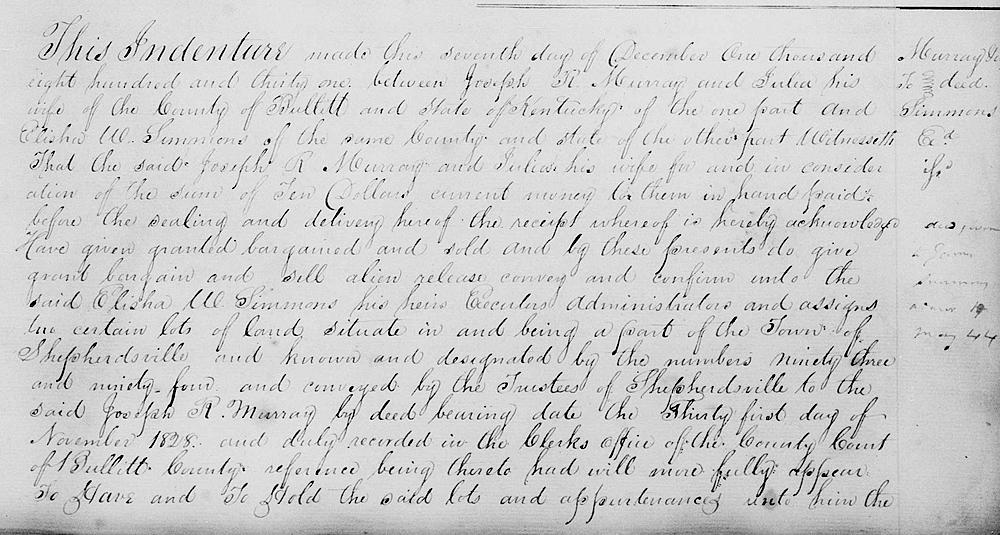 This Indenture made this seventh day of December One thousand
eight hundred and thirty one. between Joseph R. Murray and Julia his
wife of the County of Bullett and state of Kentucky of the one part and
Elisha W. Simmons of the same County and state of the other part Witnesseth
That the said Joseph R Murray and Julia his wife for and in consider
ation of the sum of Ten Dollars current money to them in hand paid
before the sealing and delivery hereof the receipt whereof is hereby acknowledged
Have given granted bargained and sold and by these presents do give
grant bargain and sell alien release convey and confirm unto the
said Elisha W Simmons his heirs Executors Administrators and assigns
two certain lots of land situate in and being a part of the Town of
Shepherdsville and known and designated by the numbers ninety three
and ninety four and conveyed by the Trustees of Shepherdsville to the
said Joseph R. Murray by deed bearing date the Thirty first day of
November 1828. and duly recorded in the Clerks office of the County Court
of Bullett County reference being thereto had will more fully appear
To Have and To Hold the said lots and appurtenances unto him the
Murray
To deed.
Simmons
Exd
May 44